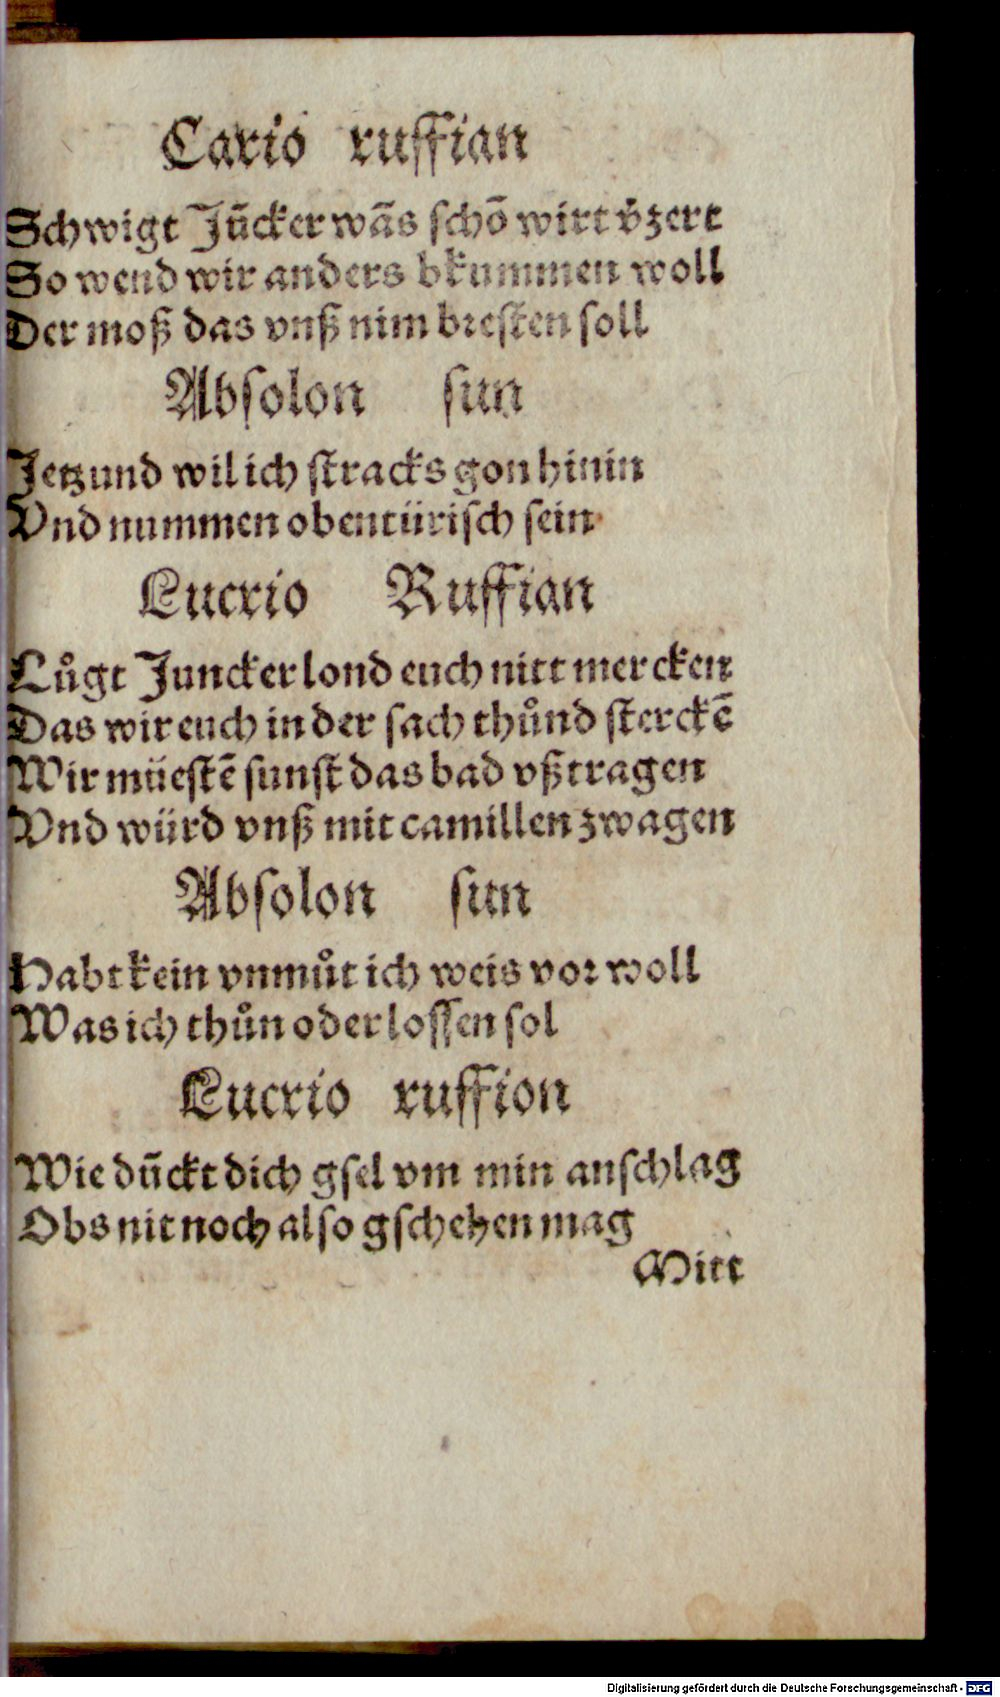 Cario ruffian
Schwigt Jūcker wãs schõ wirt v̄zert
So wend wir anders bkummen woll
Der moß das vnß nim bresten soll
Absolon sun
Jetzund wil ich stracks gon hinin
Vnd nummen obentürisch sein
Lucrio Ruffian
Lůgt Juncker lond euch nitt mercken
Das wir euch in der sach thůnd sterckẽ
Wir müestẽ sunst das bad vßtragen
Vnd würd vnß mit camillen zwagen
Absolon sun
Habt kein vnmůt ich weis vor woll
Was ich thůn oder lossen sol
Lucrio ruffion
Wie dūckt dich gsel vm min anschlag
Obs nit noch also gschehen mag
Mitt
Digitalisierung gefördert durch die Deutsche Forschungsgemeinschaft - DFG